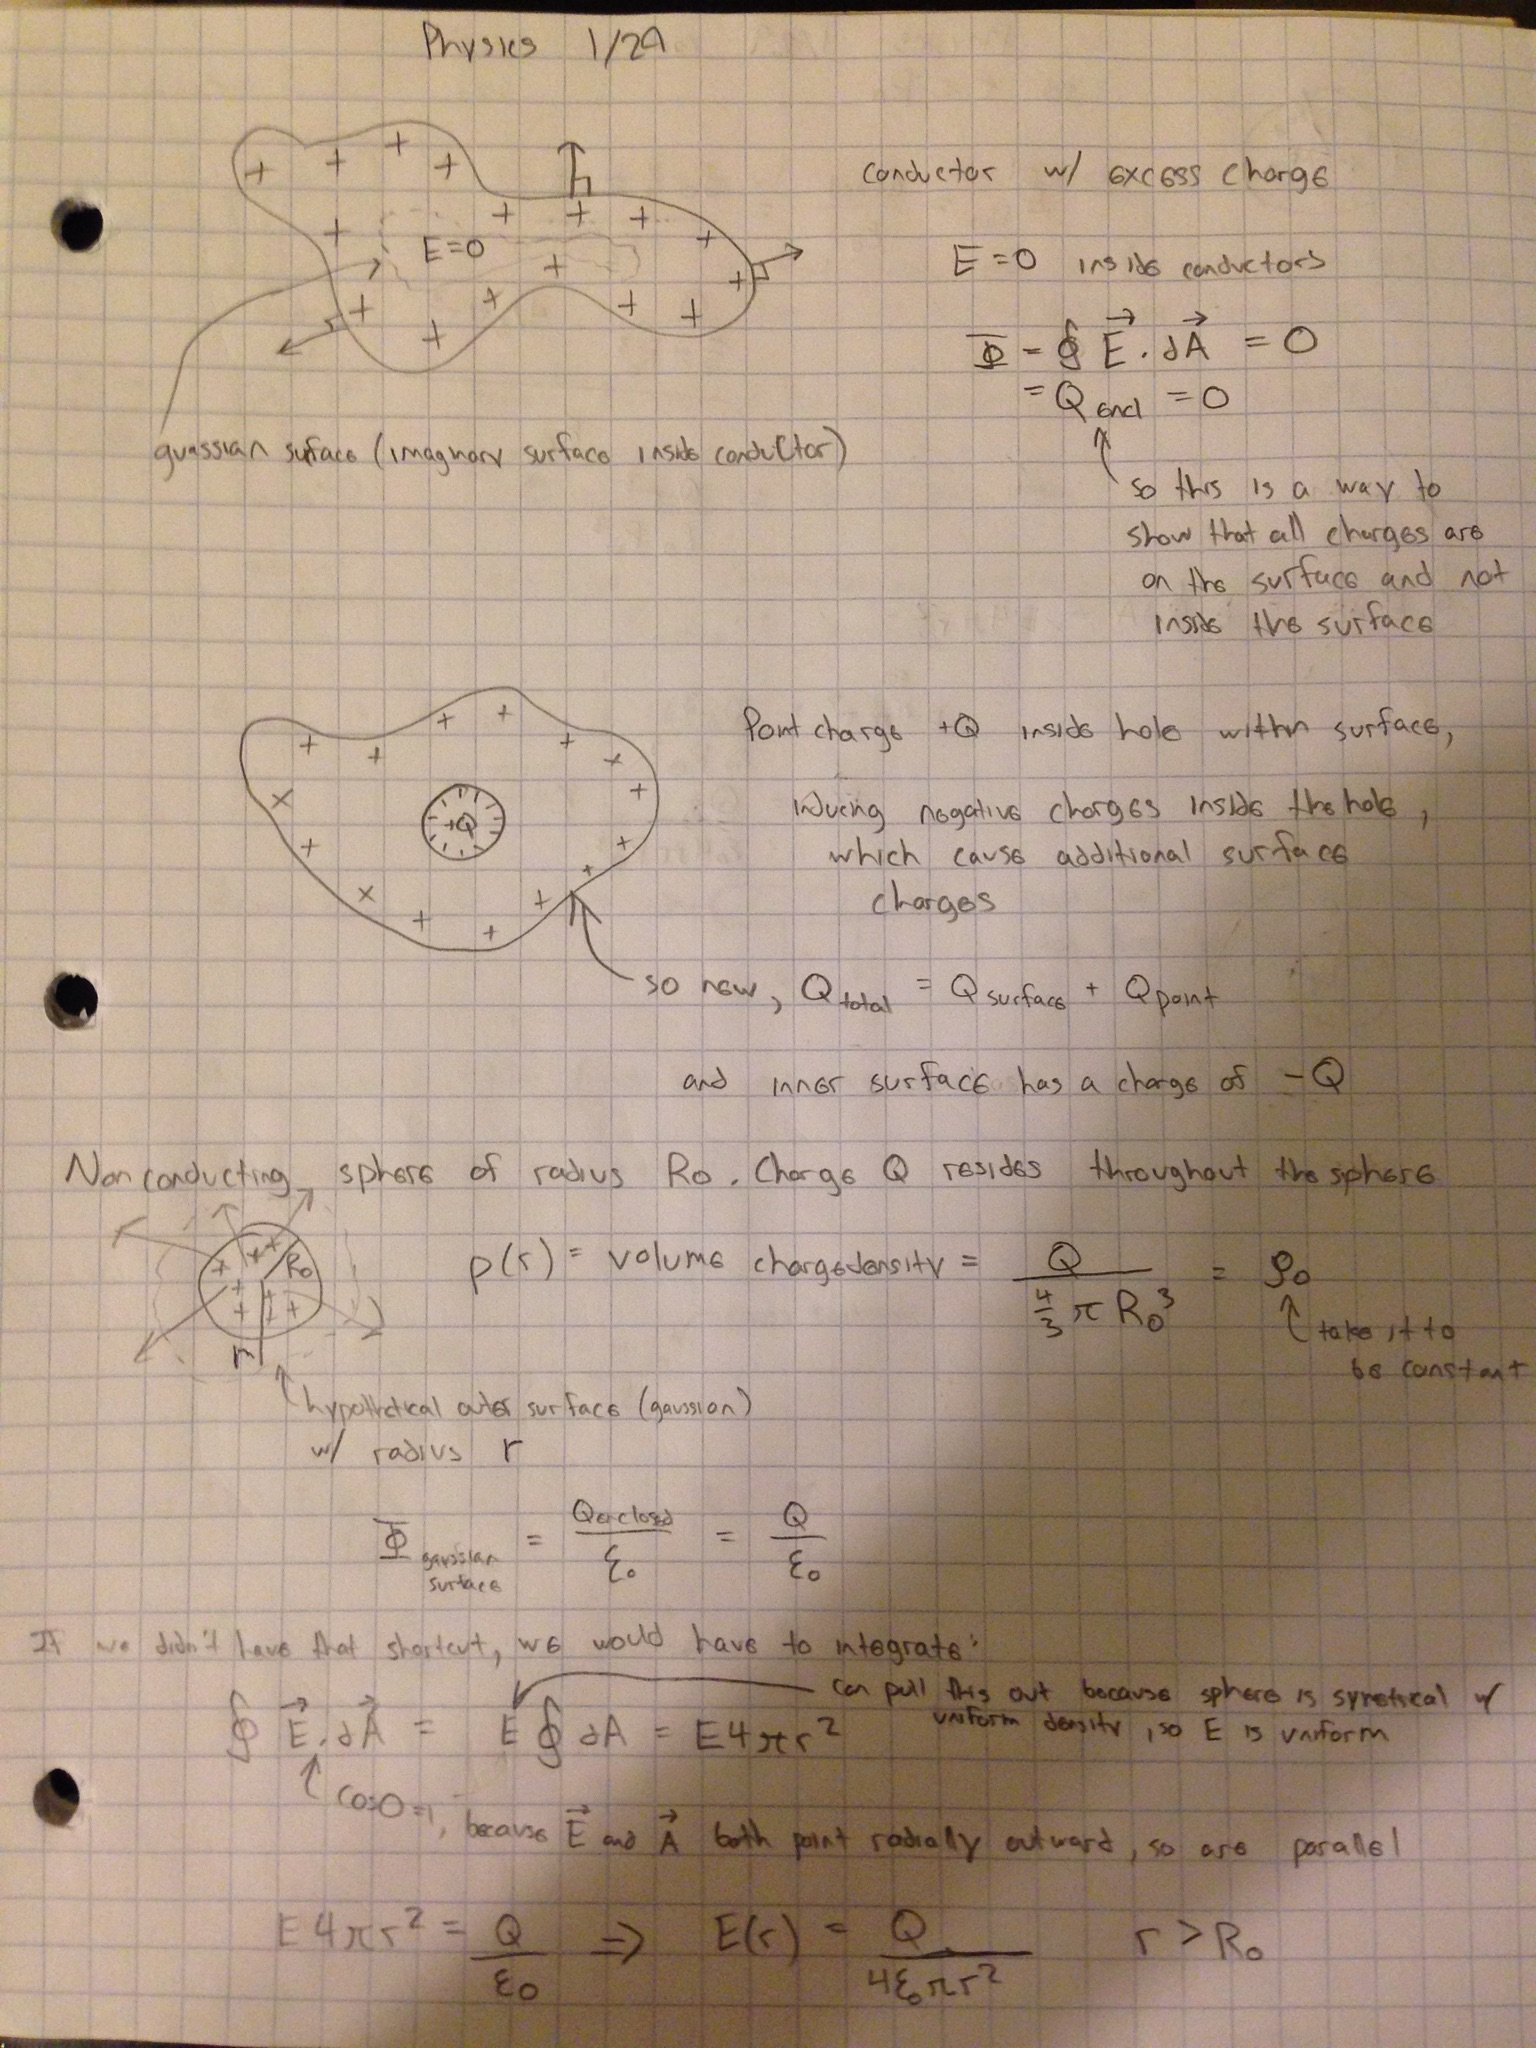 Physics 1/29
+ + + + + + + + + + + + + + + + +
conductor w/ excess charge
E=0
E=0 inside conductors
Φ = ∮ E⃗ · dA⃗ = 0
= Q encl = 0
guassian suface (imaginary surface inside conductor)
so this is a way to
show that all charges are
on the surface and not
inside the surface
Point charge +Q inside hole within surface,
+Q
inducing negative charges inside the hole,
which cause additional surface
charges
so new, Q total = Q surface + Q point
and inner surface has a charge of -Q
Nonconducting sphere of radius R₀. Charge Q resides throughout the sphere
R₀
ρ(r) = volume charge density = Q / (4/3 π R₀³) = ρ₀
take it to
be constant
r
hypothetical outer surface (gaussian)
w/ radius r
Φ gaussian surface = Qenclosed / ε₀ = Q / ε₀
If we didn't have that shortcut, we would have to integrate:
can pull this out because sphere is symetrical w/
uniform density, so E is uniform
∮ E⃗ · dA⃗ = E ∮ dA = E4πr²
cos0=1, because E⃗ and A⃗ both point radially outward, so are parallel
E4πr² = Q / ε₀ ⇒ E(r) = Q / 4ε₀πr² r > R₀